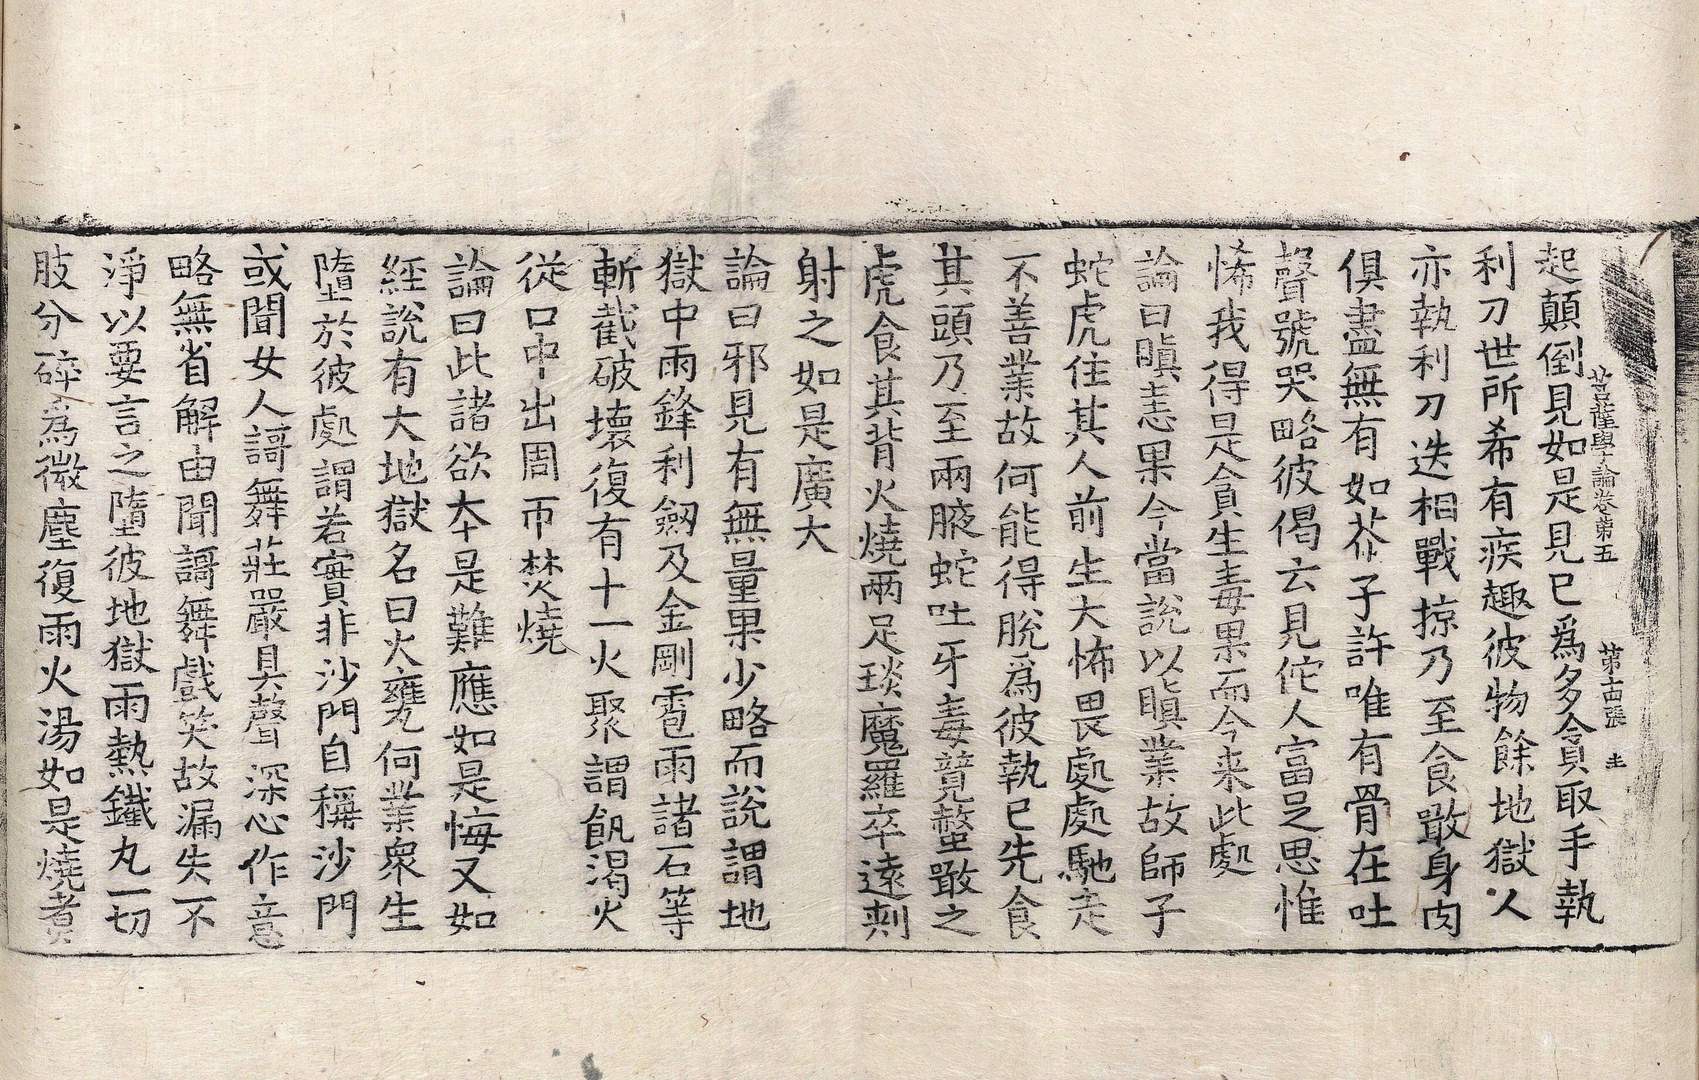 菩薩學論卷第五 第十四張 圭
起顛倒見如是見已爲多貪取手執
利刀世所希有疾趣彼物餘地獄人
亦執利刀迭相戰掠乃至食噉身肉
俱盡無有如芥子許唯有骨在吐
聲號哭略彼偈云見佗人富足思惟
悕我得是貪生毒果而今来此處
論曰瞋恚果今當說以瞋業故師子
蛇虎住其人前生大怖畏處處馳走
不善業故何能得脫爲彼執已先食
其頭乃至兩腋蛇吐牙毒競螫噉之
虎食其背火燒兩足琰魔羅卒遠刺
射之如是廣大
論曰邪見有無量果少略而說謂地
獄中雨鋒利劔及金剛雹雨諸石等
斬截破壞復有十一火聚謂飢渴火
從口中出周帀焚燒
論曰此諸欲夲是難應如是悔又如
經說有大地獄名曰火甕何業衆生
墮於彼處謂若實非沙門自稱沙門
或聞女人謌舞莊嚴具聲深心作意
略無省解由聞謌舞戲笑故漏失不
淨以要言之墮彼地獄雨熱鐵丸一切
肢分碎爲微塵復雨火湯如是燒煑